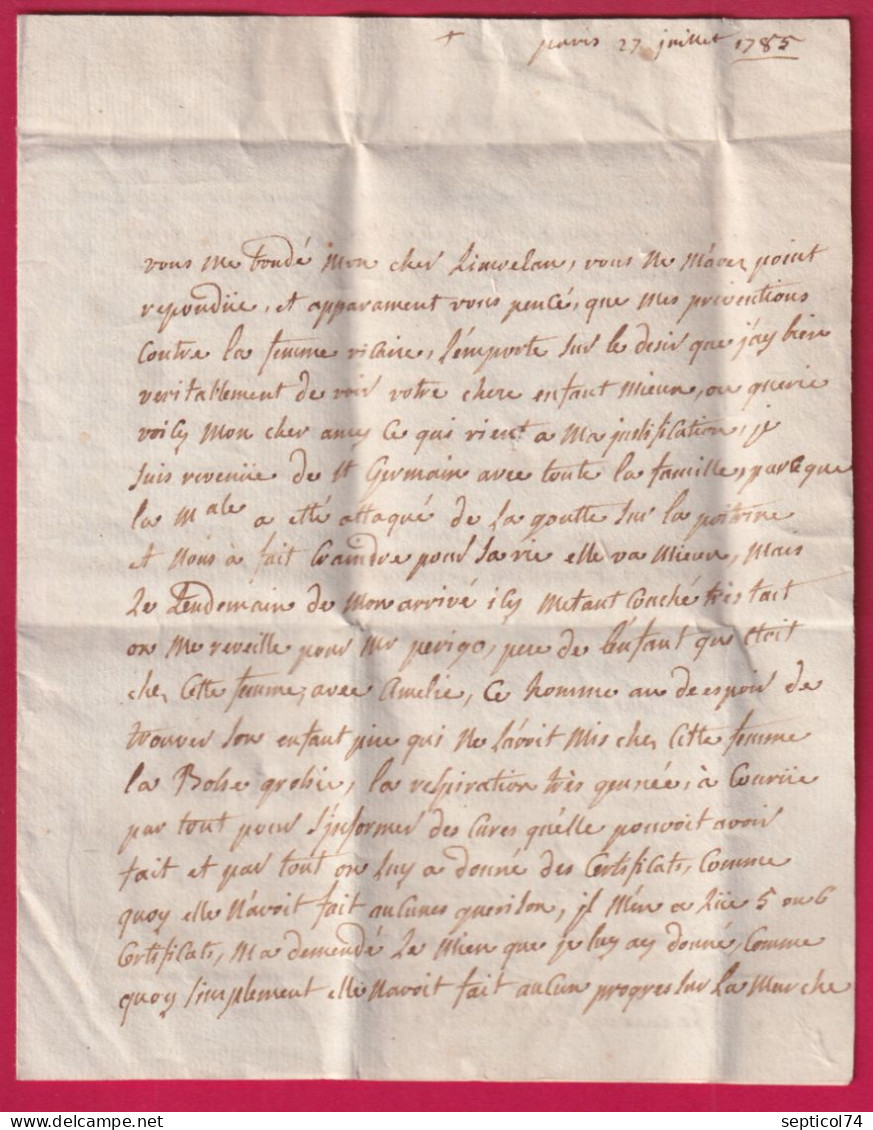 + paris 27 juillet 1785
vous me boudé mon cher Limoelan, vous ne m'avez point
repondüe, et apparament vous pencé, que mes preventions
contre la femme vicaire, l'emporte sur le desir que j'ay bien
veritablement de voir votre chere enfant mieux, ou querie
voicy mon cher amy ce qui vient a ma justification, je
suis revenüe de st Germain avec toute la famille, parceque
la m ale a etté attaqué de la goutte sur la poitrine
et nous à fait craindre pour sa vie elle va mieux, mais
le lendemain de mon arrivé icy m'etant couché très tart
on me reveille pour mr perigo, pere de l'enfant qui etoit
chez cette femme, avec Amelie, ce homme au desespoir de
trouver son enfant pire qui ne l'avoit mis chez cette femme
la Bosse grossie, la respiration très gennée, à couriie
par tout pour s'informer des cures qu'elle pouvoit avoir
fait et par tout on luy a donné des certificats, comme
quoy elle n'avoit fait aucunes querison, jl m'en a lüe 5 ou 6
certificats, m'a demendé le mien que je luy ay donné, comme
quoy simplement elle n'avoit fait aucun progres sur la marche
septicol74